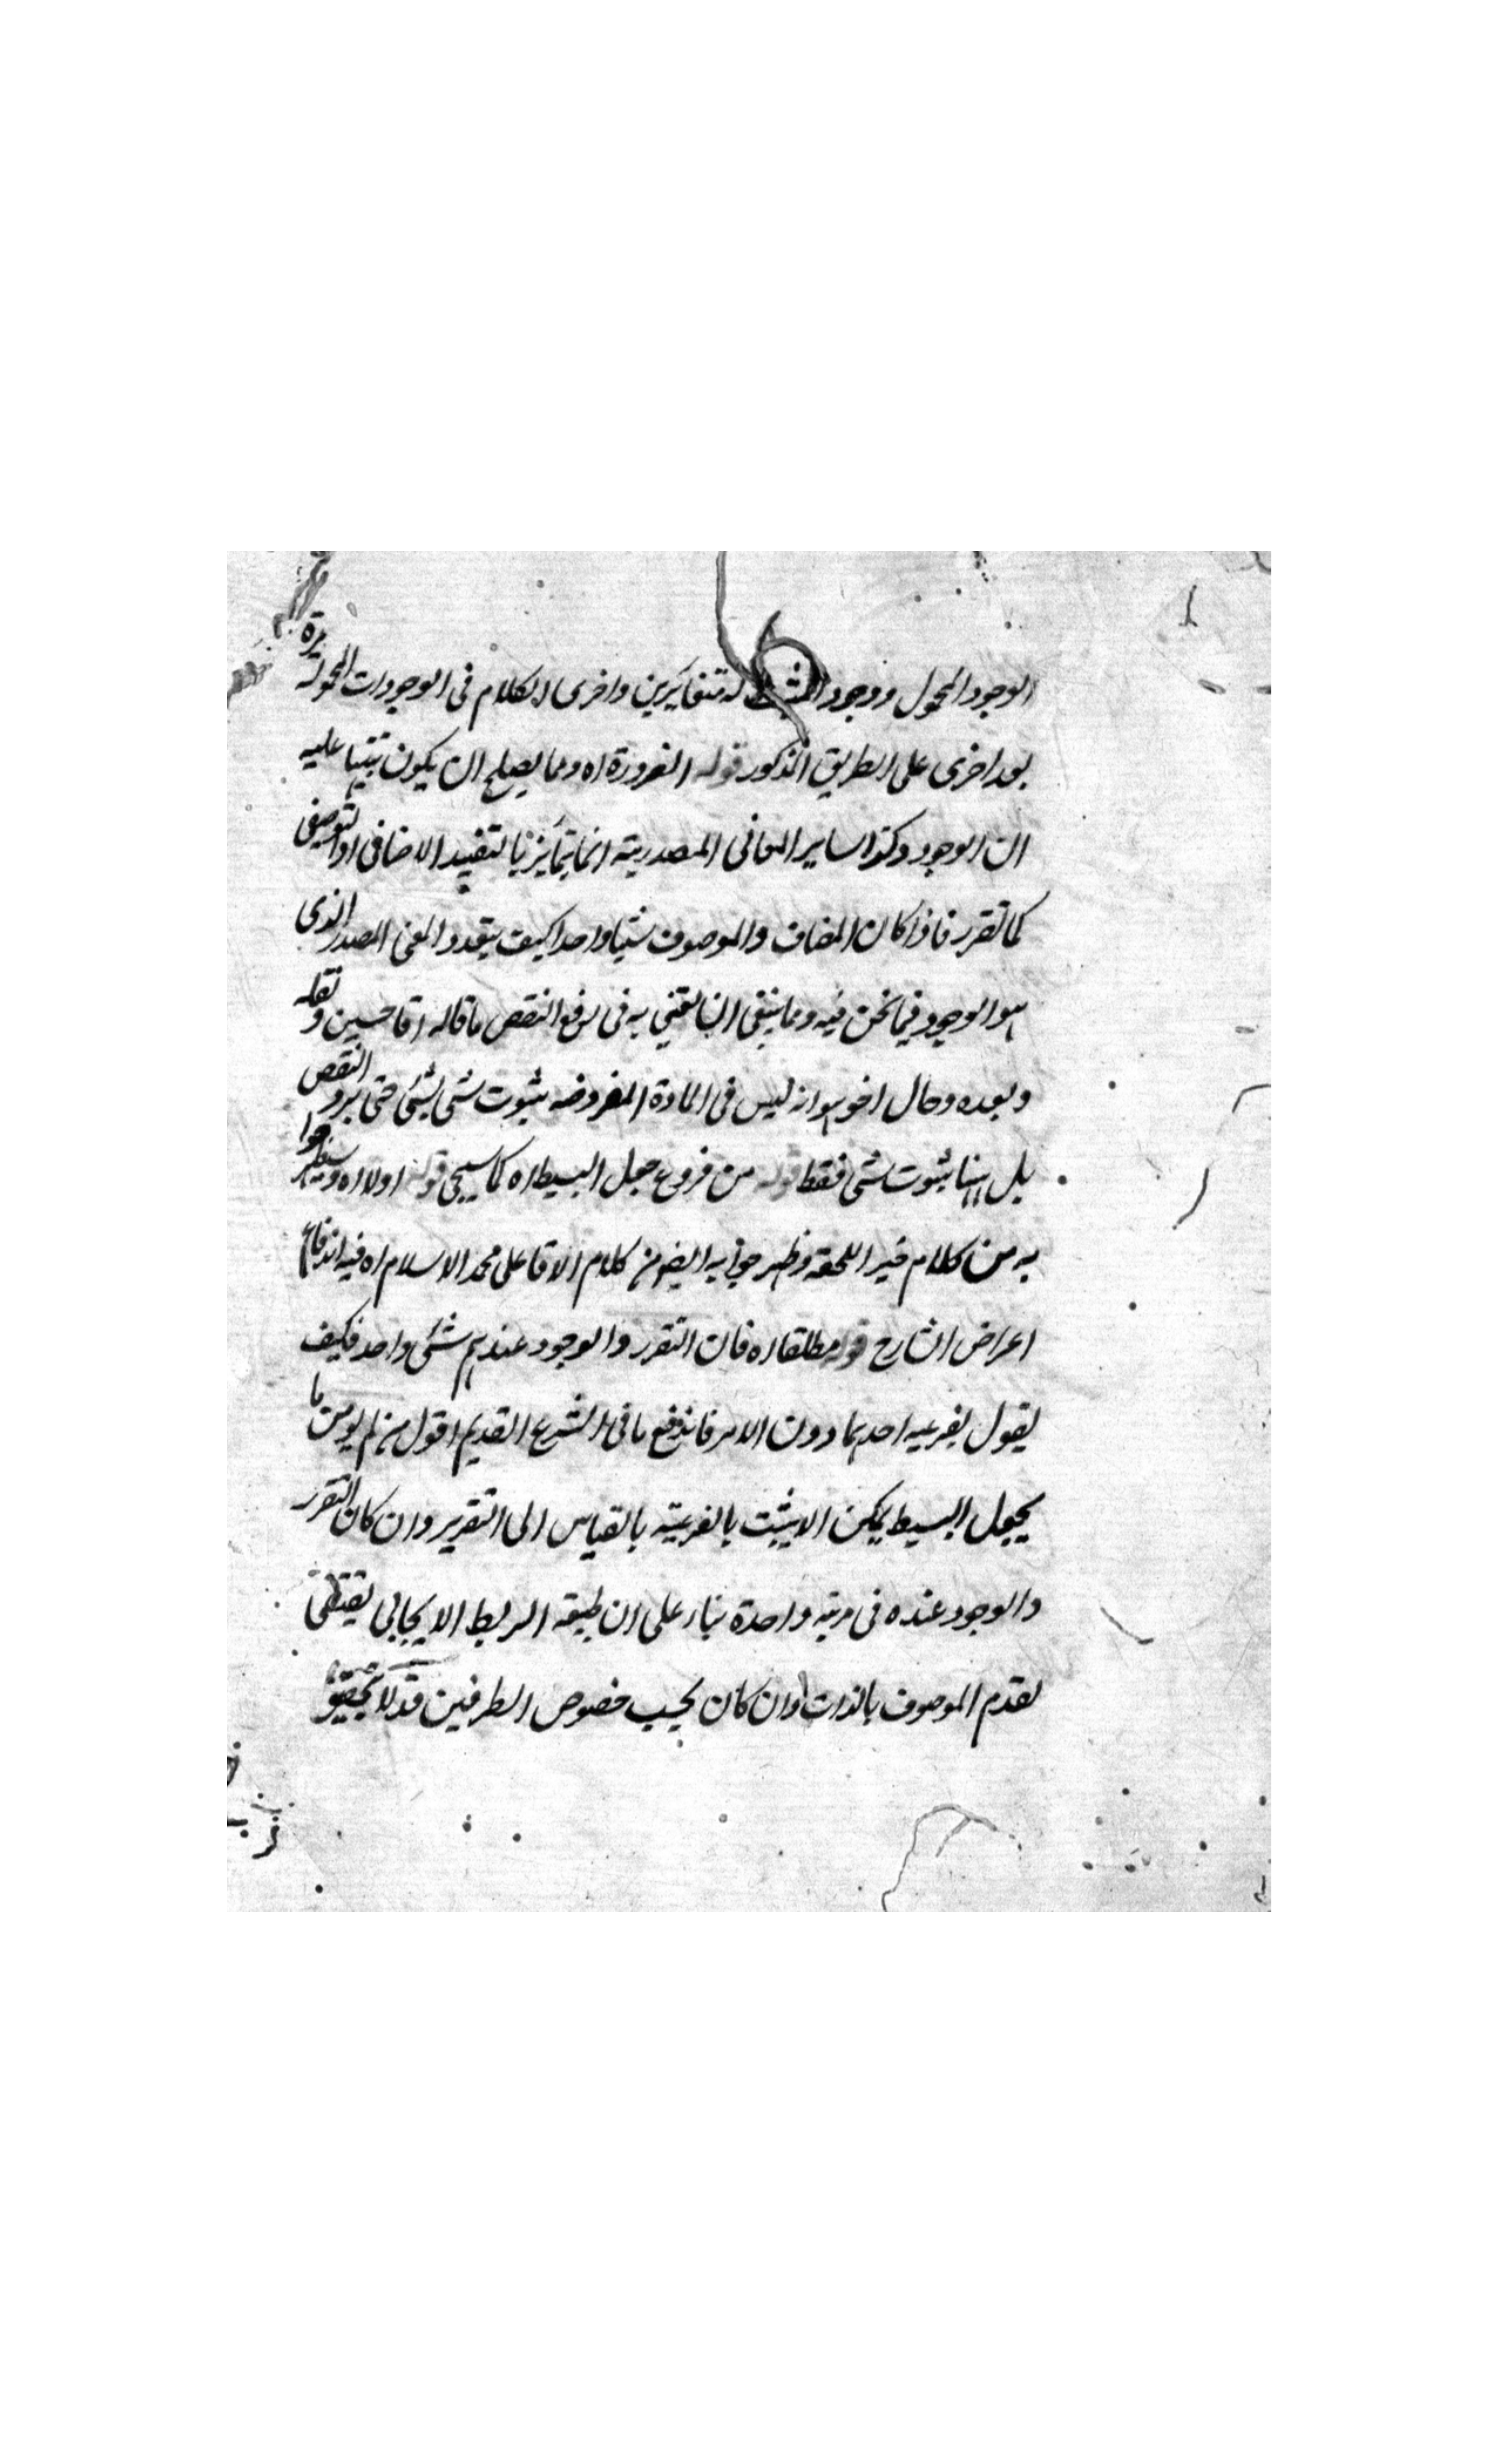 الوجود المحمول ووجود المثبت له متغايرين واخرى الكلام فى الوجودات المحمولة
بعد اخرى على الطريق المذكور قوله الضرورة اه ومما يصلح ان يكون تنبيها عليه
ان الوجود وكذا ساير المعانى المصدرية انما يتمايز بالتقييد الاضافى او التوصيفى
كما تقرر فاذا كان المضاف والموصوف شيئا واحدا كيف يتعدد المعنى المصدر الذى
هو الوجود فيما نحن فيه ومما ينبغى ان يعتنى به فى رفع النقض ما قاله اقا حسين و نقله
وبعده وحال اخر هو انه ليس فى المادة المفروضه ثبوت شئ لشئ حتى يرد النقض
بل هنا ثبوت شئ فقط قوله من فروع جعل البسيط اه كما سيجى قوله اولا اه وسيظهر جوا
به من كلام خير اللحقه وظهر جوابه ايضا من كلام الاقا على محمد الاسلام اه فيه اندفاع
اعراض الشارح قوله مطلقا اه فان التقرر والوجود عندهم شئ واحد فكيف
يقول بفرعيه احدهما دون الاخر فاندفع ما فى الشرح القديم اقول من لم يومن ما
بجعل البسيط يمكن ان يثبت بالفرعية بالقياس الى التقرير وان كان التقرر
والوجود عنده فى مرتبه واحدة بناء على ان طبيعه الربط الايجابى يقتضى
تقدم الموصوف بالذات وان كان بحسب خصوص الطرفين قد لا يتحقق